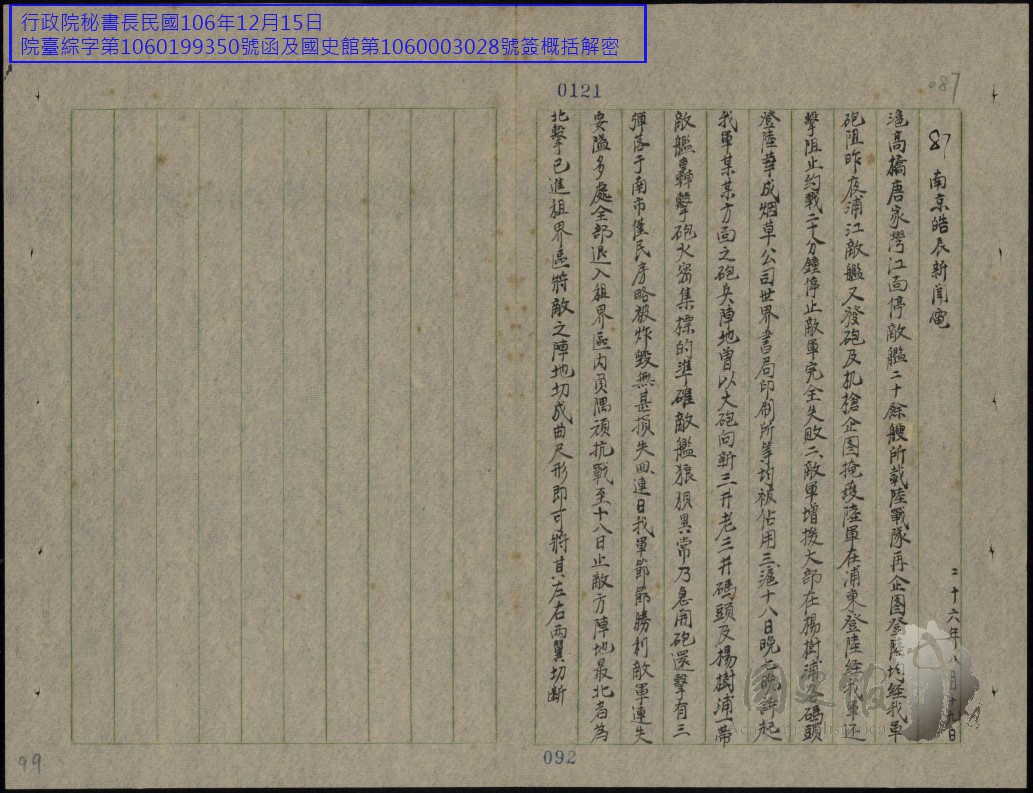 行政院秘書長民國106年12月15日
院臺綜字第1060199350號函及國史館第1060003028號簽概括解密
0121
087
87 南京皓辰新聞電
二十六年八月十九日
滬高橋唐家灣江面停敵艦二十餘艘所載陸戰隊再企圖登陸均經我軍
砲阻昨夜浦江敵艦又發砲及机搶企图掩護陸軍在浦東登陸經我軍还
擊阻止約戰二十分鐘停止敵軍完全失敗二、敵軍增援大部在楊樹浦各碼頭
澄陸華成烟草公司世界書局印刷所等均被佔用三、滬十八日晚七晚許起
我軍某某方面之砲兵陣地曾以大砲向新三井老三井碼頭及楊樹浦一帶
敵艦轟擊砲火密集標的準確敵艦狼狽異常乃急開砲還擊有三
彈落于南市僅民房略被炸毀無甚損失四、連日我軍節節勝利敵軍連失
要隘多處全部退入租界區内負隅頑抗戰至十八日止敵方陣地最北者為
北擊已進租界區將敵之陣地切成曲尺形即可將其左右兩翼切斷
092
99